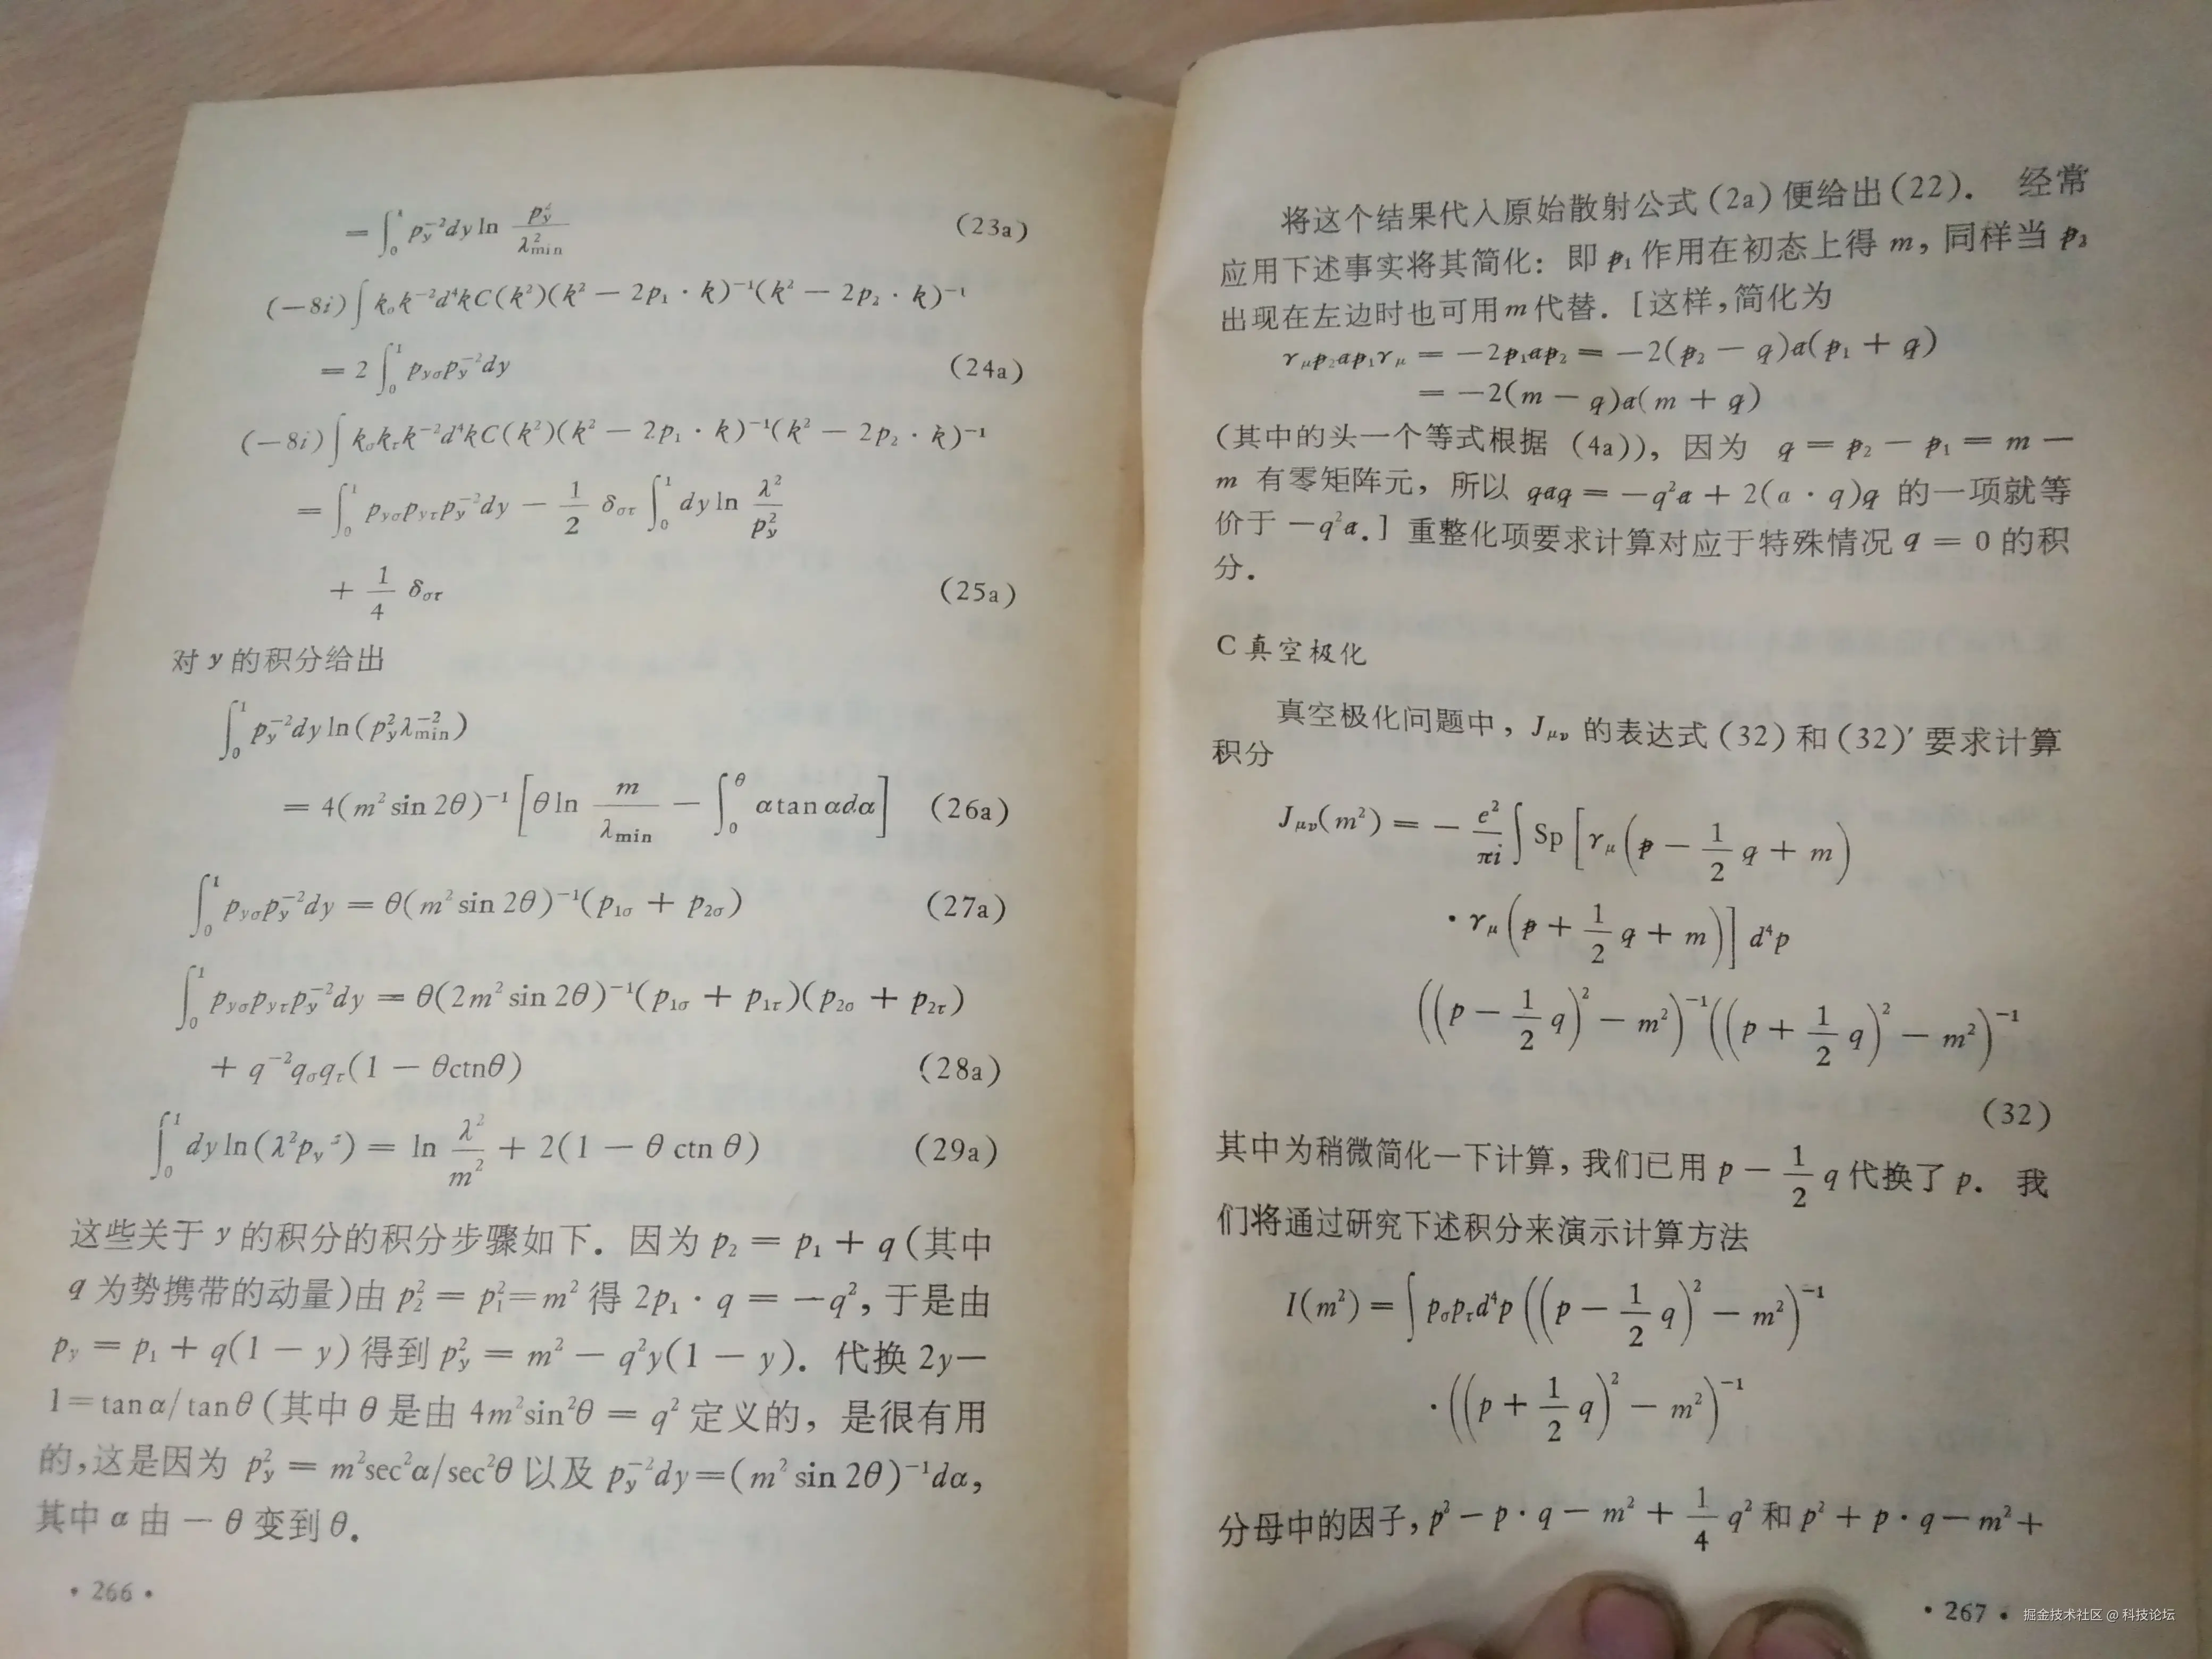 = ∫₀¹ p_y⁻²dy ln p_y²/λ²_min (23a)
(−8i)∫k_σk⁻²d⁴kC(k²)(k² − 2p₁ · k)⁻¹(k² − 2p₂ · k)⁻¹
= 2∫₀¹ p_yσ p_y⁻²dy (24a)
(−8i)∫k_σk_τk⁻²d⁴kC(k²)(k² − 2p₁ · k)⁻¹(k² − 2p₂ · k)⁻¹
= ∫₀¹ p_yσ p_yτ p_y⁻²dy − 1/2 δ_στ ∫₀¹ dy ln λ²/p_y²
+ 1/4 δ_στ (25a)
对 y 的积分给出
∫₀¹ p_y⁻²dy ln(p_y²λ_min⁻²)
= 4(m² sin 2θ)⁻¹[θ ln m/λ_min − ∫₀^θ α tan αdα] (26a)
∫₀¹ p_yσ p_y⁻²dy = θ(m² sin 2θ)⁻¹(p₁σ + p₂σ) (27a)
∫₀¹ p_yσ p_yτ p_y⁻²dy = θ(2m² sin 2θ)⁻¹(p₁σ + p₁τ)(p₂σ + p₂τ)
+ q⁻²q_σq_τ(1 − θctnθ) (28a)
∫₀¹ dy ln(λ²p_y⁻²) = ln λ²/m² + 2(1 − θ ctn θ) (29a)
这些关于 y 的积分的积分步骤如下．因为 p₂ = p₁ + q（其中
q 为势携带的动量）由 p₂² = p₁²=m² 得 2p₁ · q = −q²，于是由
p_y = p₁ + q(1 − y) 得到 p_y² = m² − q²y(1 − y)．代换 2y−
1=tanα/tanθ（其中 θ 是由 4m²sin²θ = q² 定义的，是很有用
的，这是因为 p_y² = m²sec²α/sec²θ 以及 p_y⁻²dy=(m² sin 2θ)⁻¹dα，
其中 α 由 − θ 变到 θ．
· 266 ·
将这个结果代入原始散射公式（2a）便给出（22）． 经常
应用下述事实将其简化：即 p̸₁ 作用在初态上得 m，同样当 p̸₂
出现在左边时也可用 m 代替．［这样，简化为
γ_μp̸₂a̸p̸₁γ_μ = −2p̸₁a̸p̸₂ = −2(p̸₂ − q̸)a̸(p̸₁ + q̸)
= −2(m − q̸)a̸(m + q̸)
（其中的头一个等式根据（4a）），因为 q̸ = p̸₂ − p̸₁ = m −
m 有零矩阵元，所以 q̸a̸q̸ = −q²a̸ + 2(a · q)q̸ 的一项就等
价于 −q²a̸．］重整化项要求计算对应于特殊情况 q = 0 的积
分．
C 真空极化
真空极化问题中，J_μν 的表达式（32）和（32）′ 要求计算
积分
J_μν(m²) = − e²/πi ∫ Sp[γ_μ(p̸ − 1/2 q̸ + m)
· γ_μ(p̸ + 1/2 q̸ + m)] d⁴p
((p − 1/2 q)² − m²)⁻¹((p + 1/2 q)² − m²)⁻¹
(32)
其中为稍微简化一下计算，我们已用 p − 1/2 q 代换了 p． 我
们将通过研究下述积分来演示计算方法
I(m²) = ∫ p_σp_τd⁴p((p − 1/2 q)² − m²)⁻¹
· ((p + 1/2 q)² − m²)⁻¹
分母中的因子，p² − p · q − m² + 1/4 q² 和 p² + p · q − m² +
· 267 ·
掘金技术社区 @ 科技论坛